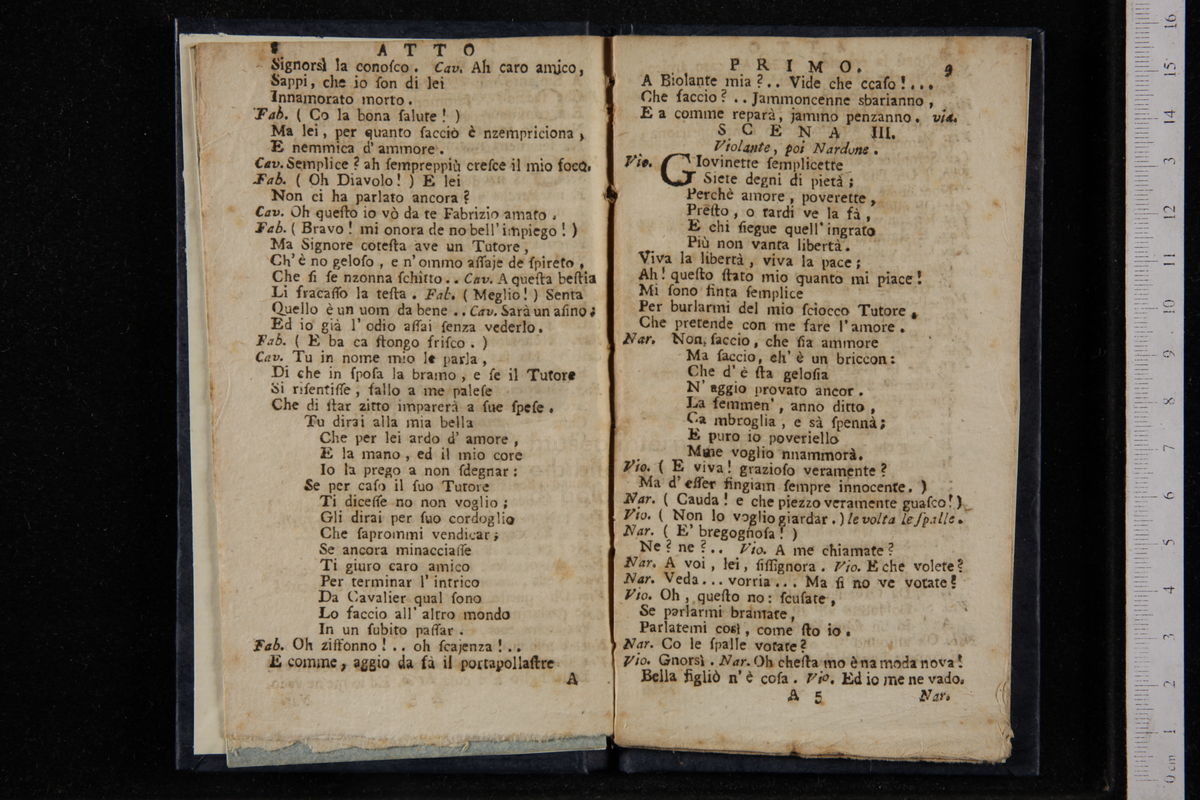 8 ATTO
Signorsì la conoſco. Cav. Ah caro amico,
Sappi, che io ſon di lei
Innamorato morto.
Fab. ( Co la bona ſalute! )
Ma lei, per quanto ſaccio è nzempriciona,
E nemmica d'ammore.
Cav. Semplice? ah ſempreppiù creſce il mio foco.
Fab. ( Oh Diavolo! ) E lei
Non ci ha parlato ancora?
Cav. Oh queſto io vò da te Fabrizio amato.
Fab. ( Bravo! mi onora de no bell'impiego! )
Ma Signore coteſta ave un Tutore,
Ch'è no geloſo, e n'ommo aſſaje de ſpireto,
Che ſi ſe nzonna ſchitto.. Cav. A queſta beſtia
Li fracaſſo la teſta. Fab. ( Meglio! ) Senta
Quello è un uom da bene.. Cav. Sarà un aſino;
Ed io già l'odio aſſai ſenza vederlo.
Fab. ( E ba ca ſtongo friſco. )
Cav. Tu in nome mio le parla,
Di che in ſpoſa la bramo, e ſe il Tutore
Si riſentiſſe, fallo a me paleſe
Che di ſtar zitto imparerà a ſue ſpeſe.
Tu dirai alla mia bella
Che per lei ardo d'amore,
E la mano, ed il mio core
Io la prego a non ſdegnar:
Se per caſo il ſuo Tutore
Ti diceſſe no non voglio;
Gli dirai per ſuo cordoglio
Che ſaprommi vendicar;
Se ancora minacciaſſe
Ti giuro caro amico
Per terminar l'intrico
Da Cavalier qual ſono
Lo faccio all'altro mondo
In un ſubito paſſar.
Fab. Oh ziffonno!.. oh ſcajenza!..
E comme, aggio da fà il portapollaſtre
A
PRIMO. 9
A Biolante mia?.. Vide che ccaſo!...
Che faccio?.. Jammoncenne sbarianno,
E a comme reparà, jammo penzanno. via.
SCENA III.
Violante, poi Nardone.
Vio. GIovinette ſemplicette
Siete degni di pietà;
Perchè amore, poverette,
Preſto, o tardi ve la fà,
E chi ſiegue quell'ingrato
Più non vanta libertà.
Viva la libertà, viva la pace;
Ah! queſto ſtato mio quanto mi piace!
Mi ſono finta ſemplice
Per burlarmi del mio ſciocco Tutore,
Che pretende con me fare l'amore.
Nar. Non ſaccio, che ſia ammore
Ma ſaccio, ch'è un briccon:
Che d'è ſta geloſia
N'aggio provato ancor.
La femmen', anno ditto,
Ca mbroglia, e sà ſpennà;
E puro io poveriello
Mme voglio nnammorà.
Vio. ( E viva! grazioſo veramente?
Ma d'eſſer fingiam ſempre innocente. )
Nar. ( Cauda! e che piezzo veramente guaſco! )
Vio. ( Non lo voglio giardar. ) le volta le ſpalle.
Nar. ( E' bregognoſa! )
Ne? ne?.. Vio. A me chiamate?
Nar. A voi, lei, ſiſſignora. Vio. E che volete?
Nar. Veda... vorria... Ma ſi no ve votate?
Vio. Oh, queſto no: ſcuſate,
Se parlarmi bramate,
Parlatemi così, come ſto io.
Nar. Co le ſpalle votate?
Vio. Gnorsì. Nar. Oh cheſta mo è na moda nova!
Bella figliò n'è coſa. Vio. Ed io me ne vado.
A 5 Nar.
0 cm 1 2 3 4 5 6 7 8 9 10 11 12 13 14 15 16